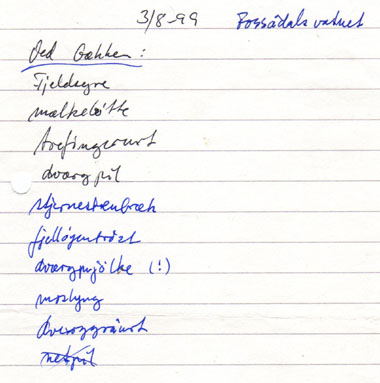 3/8-99 Fossådalsvatnet
Ved bækken:
Fjeldsyre
mælkebøtte
trefingerurt
dværgpil
stjernestenbræk
fjelløjentrøst
dværgpujølke (!)
moslyng
dværggråurt
netpil